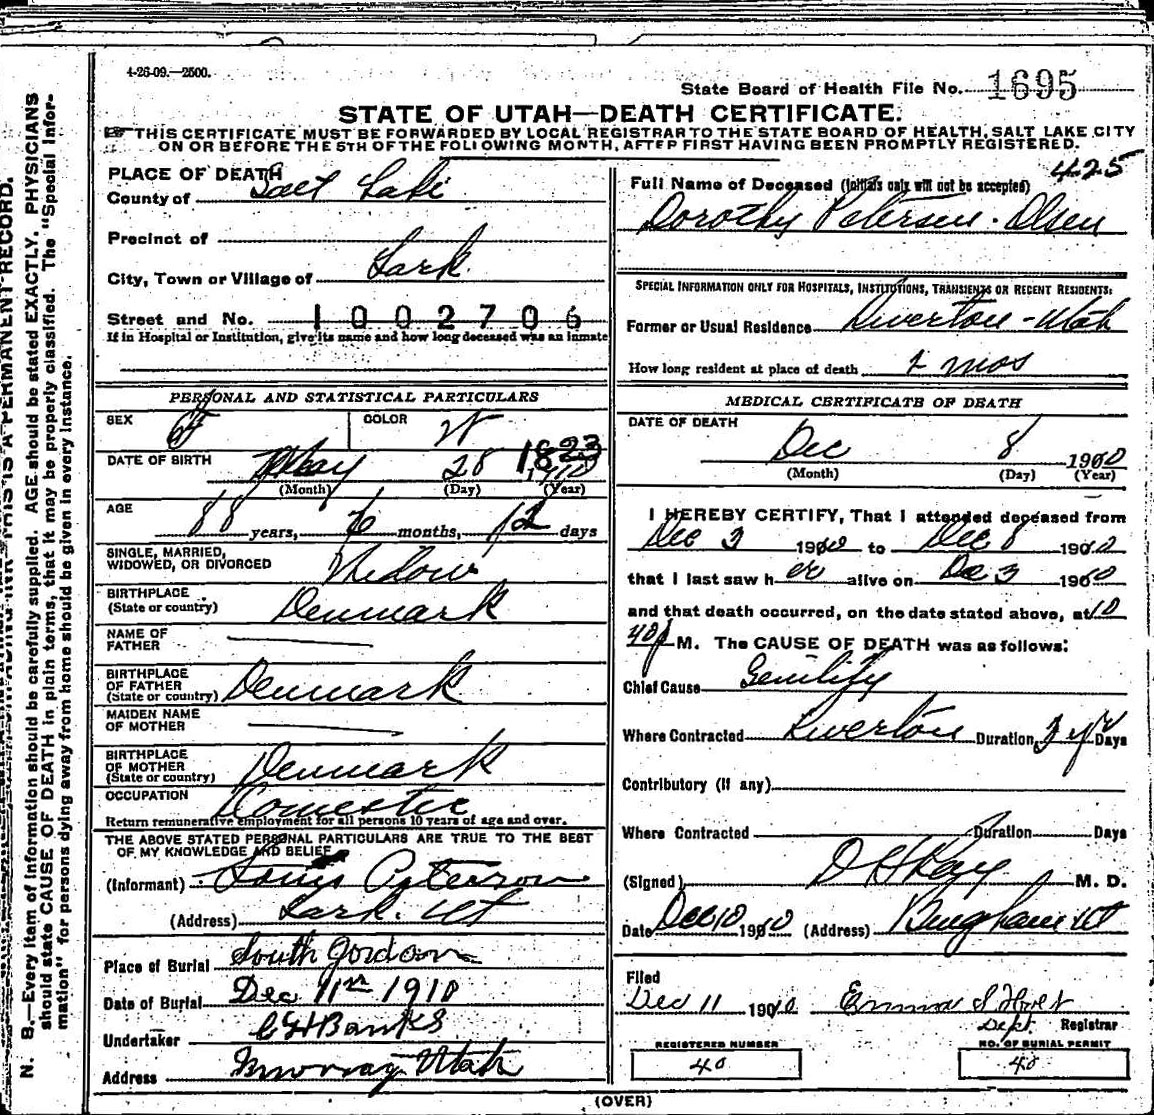 4-26-09.—2500.
State Board of Health File No. 1695
STATE OF UTAH—DEATH CERTIFICATE.
THIS CERTIFICATE MUST BE FORWARDED BY LOCAL REGISTRAR TO THE STATE BOARD OF HEALTH, SALT LAKE CITY
ON OR BEFORE THE 5TH OF THE FOLLOWING MONTH, AFTER FIRST HAVING BEEN PROMPTLY REGISTERED.
N. B.—Every item of information should be carefully supplied. AGE should be stated EXACTLY. PHYSICIANS
should state CAUSE OF DEATH in plain terms, that it may be properly classified. The "Special Infor-
mation" for persons dying away from home should be given in every instance.
THIS IS A PERMANENT RECORD.
PLACE OF DEATH
County of Salt Lake
Precinct of
City, Town or Village of Lark
Street and No. 1002706
If in Hospital or Institution, give its name and how long deceased was an inmate
PERSONAL AND STATISTICAL PARTICULARS
SEX F COLOR W
DATE OF BIRTH May 28 1823
(Month) (Day) (Year)
AGE 88 years, 6 months, 12 days
SINGLE, MARRIED,
WIDOWED, OR DIVORCED Widow
BIRTHPLACE
(State or country) Denmark
NAME OF
FATHER
BIRTHPLACE
OF FATHER
(State or country) Denmark
MAIDEN NAME
OF MOTHER
BIRTHPLACE
OF MOTHER
(State or country) Denmark
OCCUPATION Domestic
Return remunerative employment for all persons 10 years of age and over.
THE ABOVE STATED PERSONAL PARTICULARS ARE TRUE TO THE BEST
OF MY KNOWLEDGE AND BELIEF
(Informant) Louis Peterson
(Address) Lark. Ut
Place of Burial South Jordan
Date of Burial Dec 11th 1910
Undertaker Banks
Address Murray Utah
425
Full Name of Deceased (Initials only will not be accepted)
Dorothy Petersen-Olsen
SPECIAL INFORMATION ONLY FOR HOSPITALS, INSTITUTIONS, TRANSIENTS OR RECENT RESIDENTS:
Former or Usual Residence Riverton-Utah
How long resident at place of death mos
MEDICAL CERTIFICATE OF DEATH
DATE OF DEATH
Dec 8 1910
(Month) (Day) (Year)
I HEREBY CERTIFY, That I attended deceased from
Dec 3 1910 to Dec 8 1910
that I last saw her alive on Dec 3 1910
and that death occurred, on the date stated above, at 10
40p M. The CAUSE OF DEATH was as follows:
Chief Cause Senility
Where Contracted Riverton Duration 3 yr Days
Contributory (if any)
Where Contracted Duration Days
(Signed) M. D.
Date Dec 10 1910 (Address) Bingham Ut
Filed
Dec 11 1910 Emma S Holt
Dept. Registrar
REGISTERED NUMBER
40
NO. OF BURIAL PERMIT
40
(OVER)